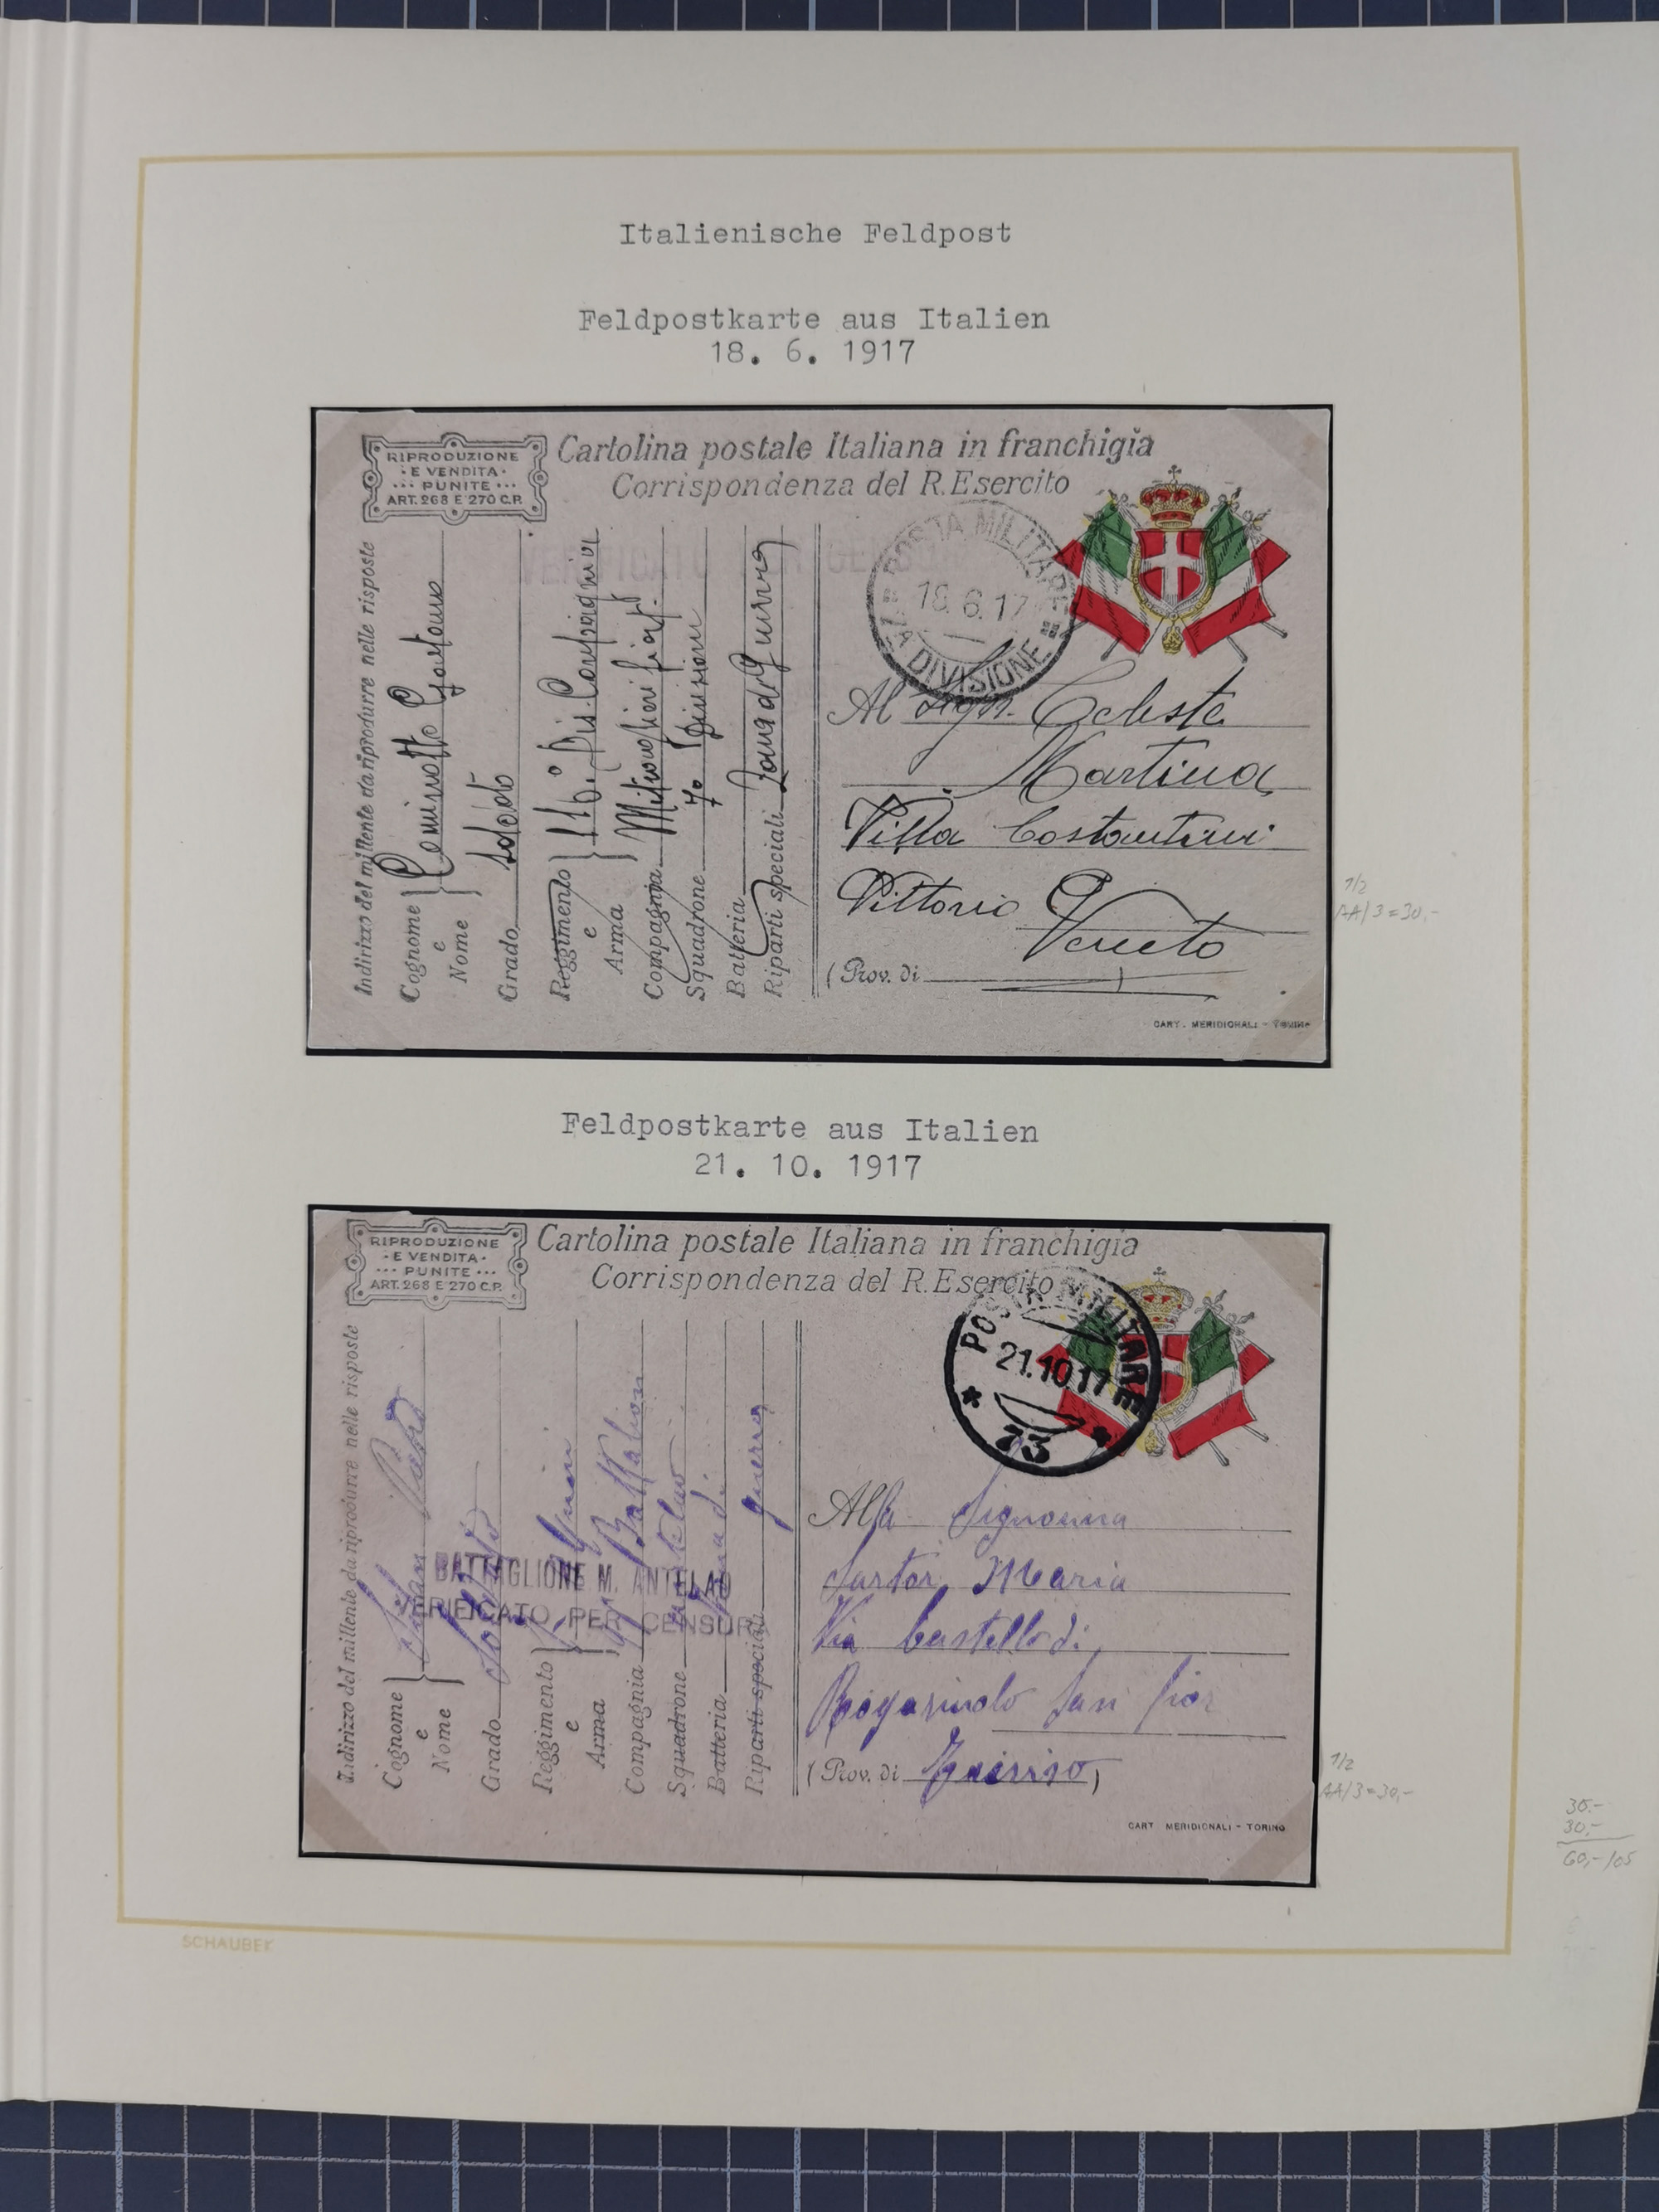 Italienische Feldpost
Feldpostkarte aus Italien
18. 6. 1917
RIPRODUZIONE
E VENDITA
PUNITE
ART. 268 E 270 C.P.
Cartolina postale Italiana in franchigia
Corrispondenza del R. Esercito
Indirizzo del mittente da riprodurre nelle risposte
Cognome
e
Nome
Grado soldato
Reggimento
e
Arma
116°
Compagnia Mitraglieri Fiat
Squadrone 7a Divisioni
Batteria
Riparti speciali Zona di Guerra
VERIFICATO PER CENSURA
POSTA MILITARE
18.6.17
7A DIVISIONE
Al Sigr. Celeste
Martina
Villa Costantini
Vittorio Veneto
(Prov. di
CART. MERIDIONALI - TORINO
1/2
AA/3=30,-
Feldpostkarte aus Italien
21. 10. 1917
RIPRODUZIONE
E VENDITA
PUNITE
ART. 268 E 270 C.P.
Cartolina postale Italiana in franchigia
Corrispondenza del R. Esercito
Indirizzo del mittente da riprodurre nelle risposte
Cognome
e
Nome
Grado Soldato
Reggimento
e
Arma
Compagnia
Squadrone
Batteria
Riparti speciali guerra
BATTAGLIONE M. ANTELAO
VERIFICATO PER CENSURA
POSTA MILITARE
21.10.17
73
Alla Signorina
Sartor Maria
Via Castello di
San Fior
(Prov. di
CART. MERIDIONALI - TORINO
1/2
AA/3=30,-
30.-
30,-
60,-/05
SCHAUBEK